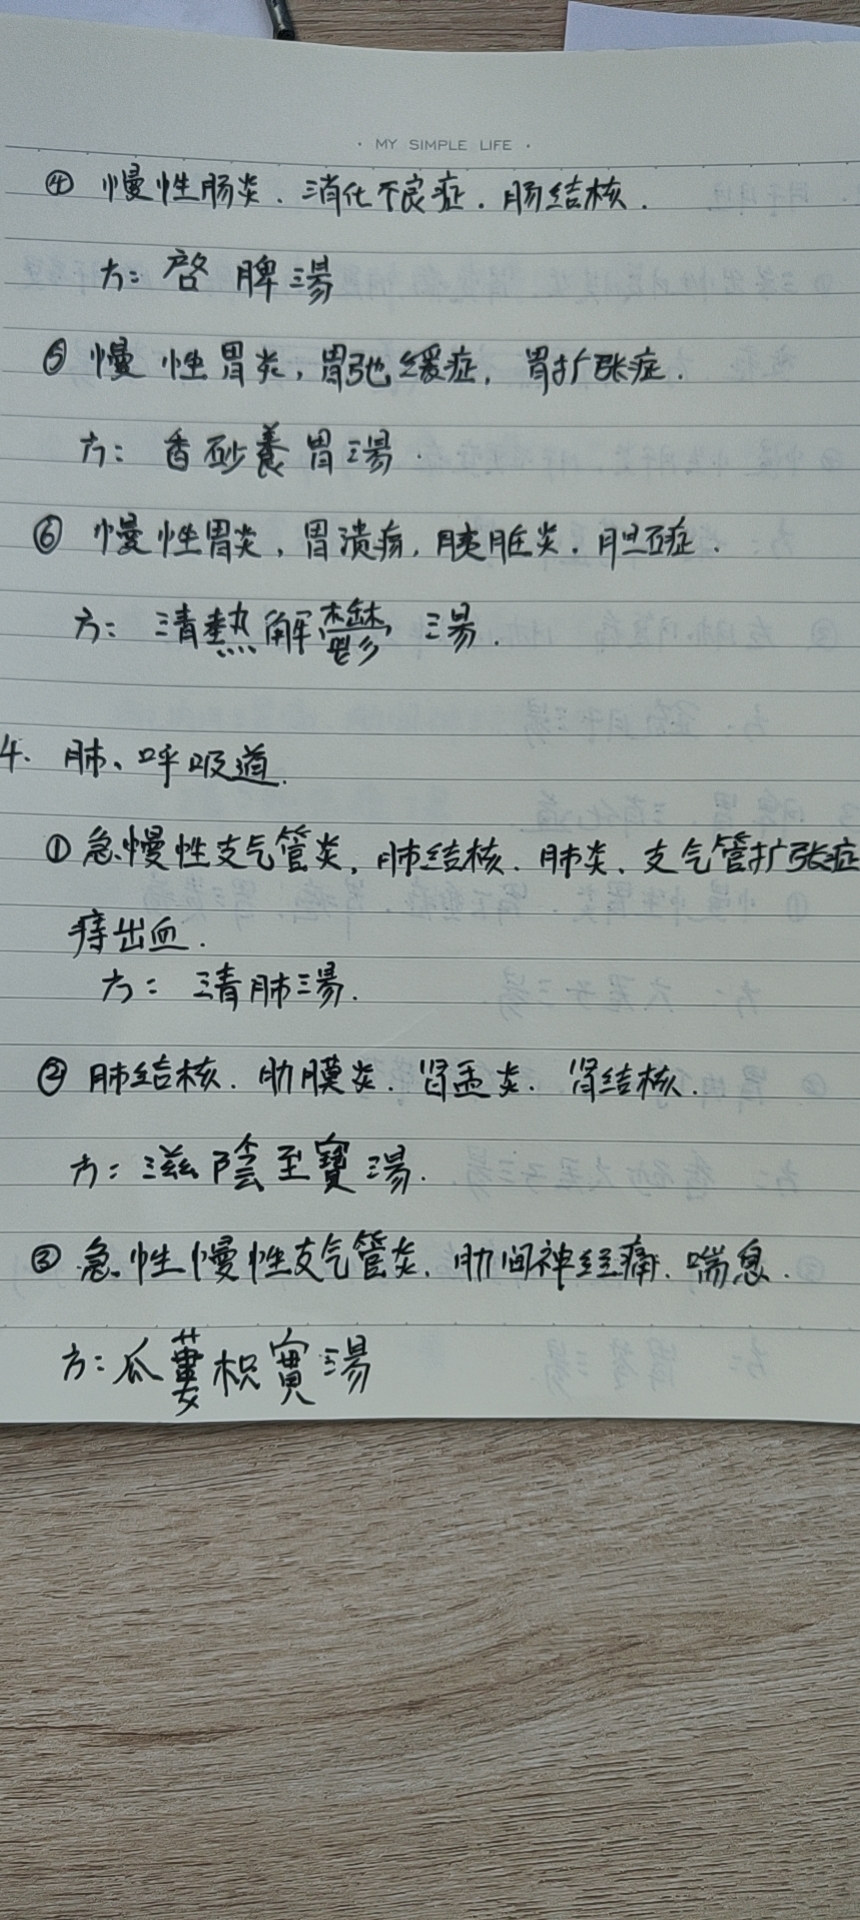 · MY SIMPLE LIFE ·
④ 慢性肠炎. 消化不良症. 肠结核.
方: 啓脾湯
⑤ 慢性胃炎, 胃弛缓症, 胃扩张症.
方: 香砂養胃湯.
⑥ 慢性胃炎, 胃溃疡, 胰脏炎. 胆石症.
方: 清熱解鬱湯.
4. 肺、呼吸道.
① 急.慢性支气管炎, 肺结核. 肺炎. 支气管扩张症
痔出血.
方: 清肺湯.
② 肺结核. 肋膜炎. 肾盂炎. 肾结核.
方: 滋陰至寶湯.
③ 急.性慢性支气管炎. 肋间神经痛. 喘息.
方: 瓜蔞枳實湯